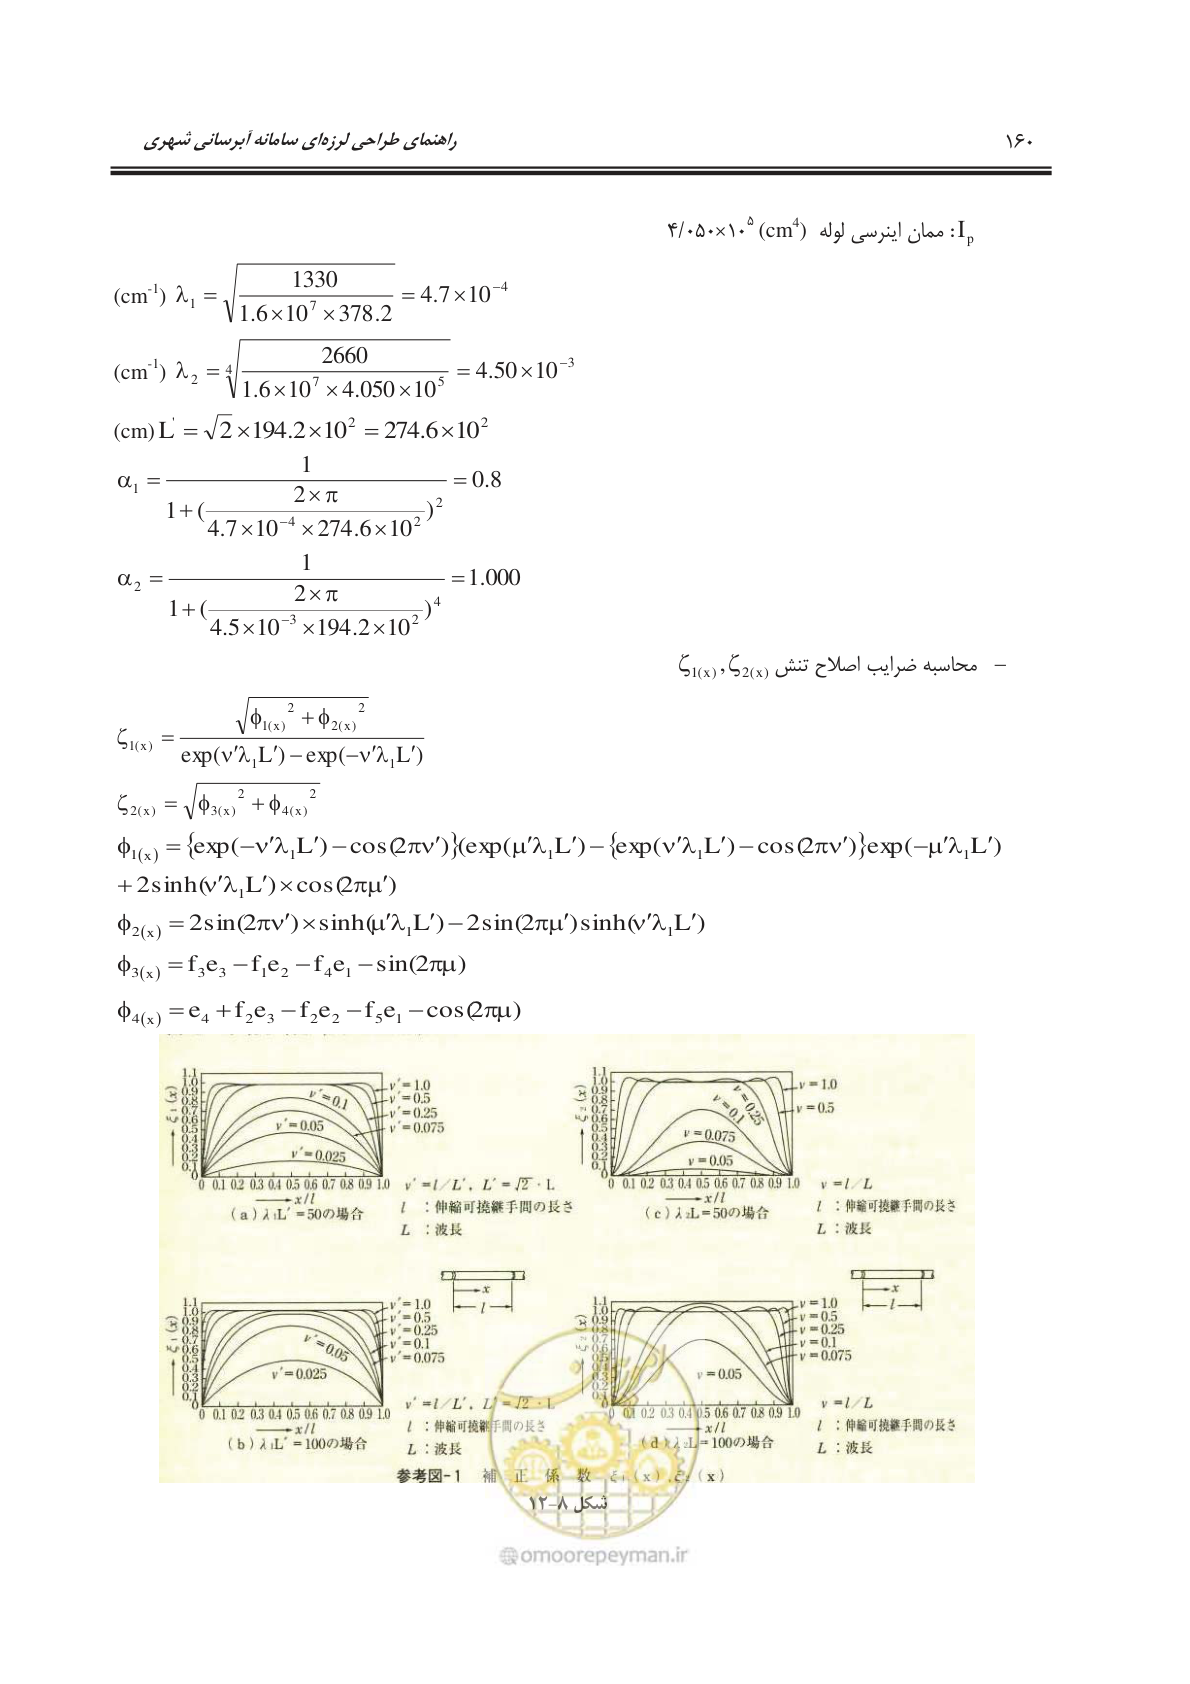 راهنمای طراحی لرزه‌ای سامانه آبرسانی شهری ۱۶۰
I_p: ممان اینرسی لوله (cm^4) ۴/۰۵۰×۱۰^۵
(cm^-1) λ_1 = √(1330 / (1.6×10^7 ×378.2)) = 4.7×10^−4
(cm^-1) λ_2 = ∜(2660 / (1.6×10^7 ×4.050×10^5)) = 4.50×10^−3
(cm) L' = √2 ×194.2×10^2 = 274.6×10^2
α_1 = 1 / (1+(2×π / (4.7×10^−4 ×274.6×10^2))^2) = 0.8
α_2 = 1 / (1+(2×π / (4.5×10^−3 ×194.2×10^2))^4) = 1.000
– محاسبه ضرایب اصلاح تنش ζ_1(x) , ζ_2(x)
ζ_1(x) = √(ϕ_1(x)^2 + ϕ_2(x)^2) / (exp(ν′λ_1L′) − exp(−ν′λ_1L′))
ζ_2(x) = √(ϕ_3(x)^2 + ϕ_4(x)^2)
ϕ_1(x) = {exp(−ν′λ_1L′) − cos(2πν′)}(exp(μ′λ_1L′) − {exp(ν′λ_1L′) − cos(2πν′)}exp(−μ′λ_1L′)
+ 2sinh(ν′λ_1L′)×cos(2πμ′)
ϕ_2(x) = 2sin(2πν′)×sinh(μ′λ_1L′) − 2sin(2πμ′)sinh(ν′λ_1L′)
ϕ_3(x) = f_3e_3 − f_1e_2 − f_4e_1 − sin(2πμ)
ϕ_4(x) = e_4 + f_2e_3 − f_2e_2 − f_5e_1 − cos(2πμ)
ξ_1(x)
1.1
1.0
0.9
0.8
0.7
0.6
0.5
0.4
0.3
0.2
0.1
0
ν′=0.1
ν′=0.05
ν′=0.025
ν′=1.0
ν′=0.5
ν′=0.25
ν′=0.075
0 0.1 0.2 0.3 0.4 0.5 0.6 0.7 0.8 0.9 1.0
x/l
(a) λ_1L′=50の場合
ν′=l/L′, L′=√2・L
l :伸縮可撓継手間の長さ
L :波長
ξ_2(x)
1.1
1.0
0.9
0.8
0.7
0.6
0.5
0.4
0.3
0.2
0.1
0
ν=0.25
ν=0.1
ν=0.075
ν=0.05
ν=1.0
ν=0.5
0 0.1 0.2 0.3 0.4 0.5 0.6 0.7 0.8 0.9 1.0
x/l
(c) λ_2L=50の場合
ν=l/L
l :伸縮可撓継手間の長さ
L :波長
x
l
x
l
ξ_1(x)
1.1
1.0
0.9
0.8
0.7
0.6
0.5
0.4
0.3
0.2
0.1
0
ν′=0.05
ν′=0.025
ν′=1.0
ν′=0.5
ν′=0.25
ν′=0.1
ν′=0.075
0 0.1 0.2 0.3 0.4 0.5 0.6 0.7 0.8 0.9 1.0
x/l
(b) λ_1L′=100の場合
ν′=l/L′, L′=√2・L
l :伸縮可撓継手間の長さ
L :波長
ξ_2(x)
1.1
1.0
0.9
0.8
0.7
0.6
0.5
0.4
0.3
0.2
0.1
0
ν=0.05
ν=1.0
ν=0.5
ν=0.25
ν=0.1
ν=0.075
0 0.1 0.2 0.3 0.4 0.5 0.6 0.7 0.8 0.9 1.0
x/l
(d) λ_2L=100の場合
ν=l/L
l :伸縮可撓継手間の長さ
L :波長
参考図-1 補正係数 ξ_1(x), ξ_2(x)
شکل ۸-۱۲
@omoorepeyman.ir